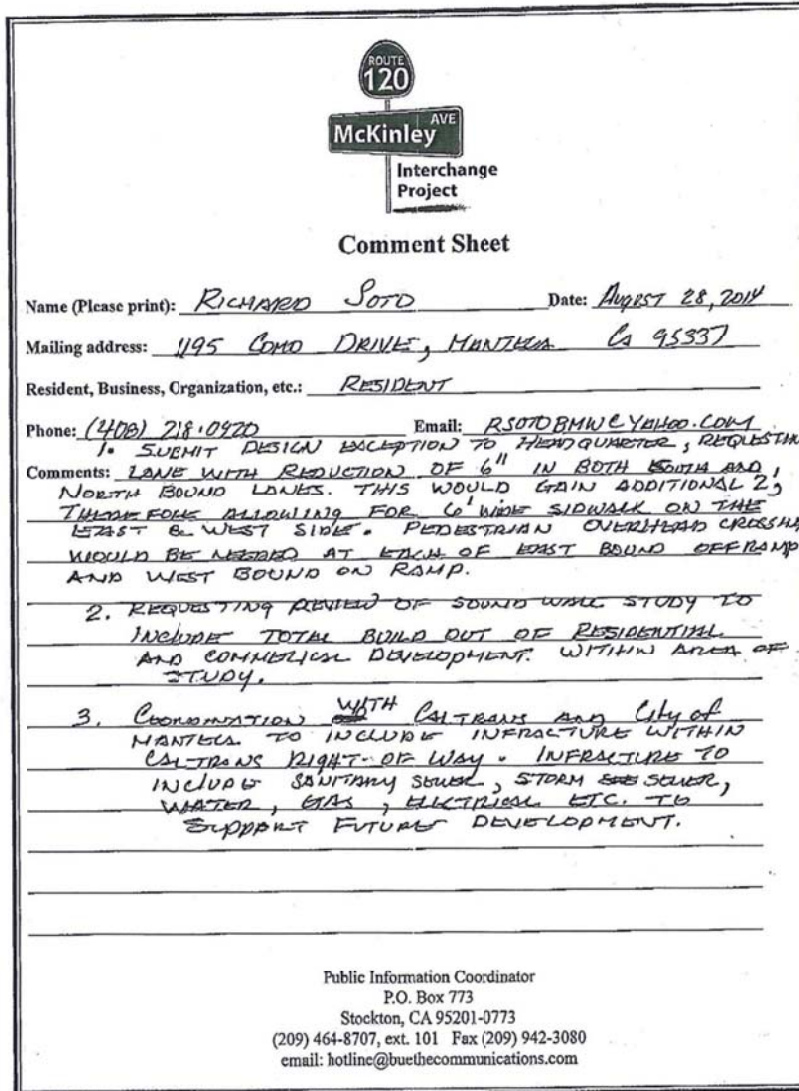 ROUTE
120
McKinley AVE
Interchange
Project
Comment Sheet
Name (Please print): RICHARD SOTO Date: August 28, 2014
Mailing address: 1195 COMO DRIVE, MANTECA Ca 95337
Resident, Business, Organization, etc.: RESIDENT
Phone: (408) 218-0920 Email: RSOTOBMW@YAHOO.COM
1. SUBMIT DESIGN EXCEPTION TO HEADQUARTER, REQUESTING
Comments: LANE WITH REDUCTION OF 6" IN BOTH SOUTH AND
NORTH BOUND LANES. THIS WOULD GAIN ADDITIONAL 2,
THEREFORE ALLOWING FOR 6' WIDE SIDWALK ON THE
EAST & WEST SIDE. PEDESTRIAN OVERHEAD
WOULD BE NEEDED AT EACH OF EAST BOUND OFFRAMP
AND WEST BOUND ON RAMP.
2. REQUESTING REVIEW OF SOUND WALL STUDY TO
INCLUDE TOTAL BUILD OUT OF RESIDENTIAL
AND COMMERICAL DEVELOPMENT. WITHIN AREA OF
STUDY.
3. COORDINATION WITH CALTRANS AND City of
MANTECA TO INCLUDE INFRACTURE WITHIN
CALTRANS RIGHT-OF WAY. INFRACTURE TO
INCLUDE SANITARY SEWER, STORM SEWER,
WATER, GAS, ELECTRICAL ETC. TO
SUPPORT FUTURE DEVELOPMENT.
Public Information Coordinator
P.O. Box 773
Stockton, CA 95201-0773
(209) 464-8707, ext. 101 Fax (209) 942-3080
email: hotline@buethecommunications.com